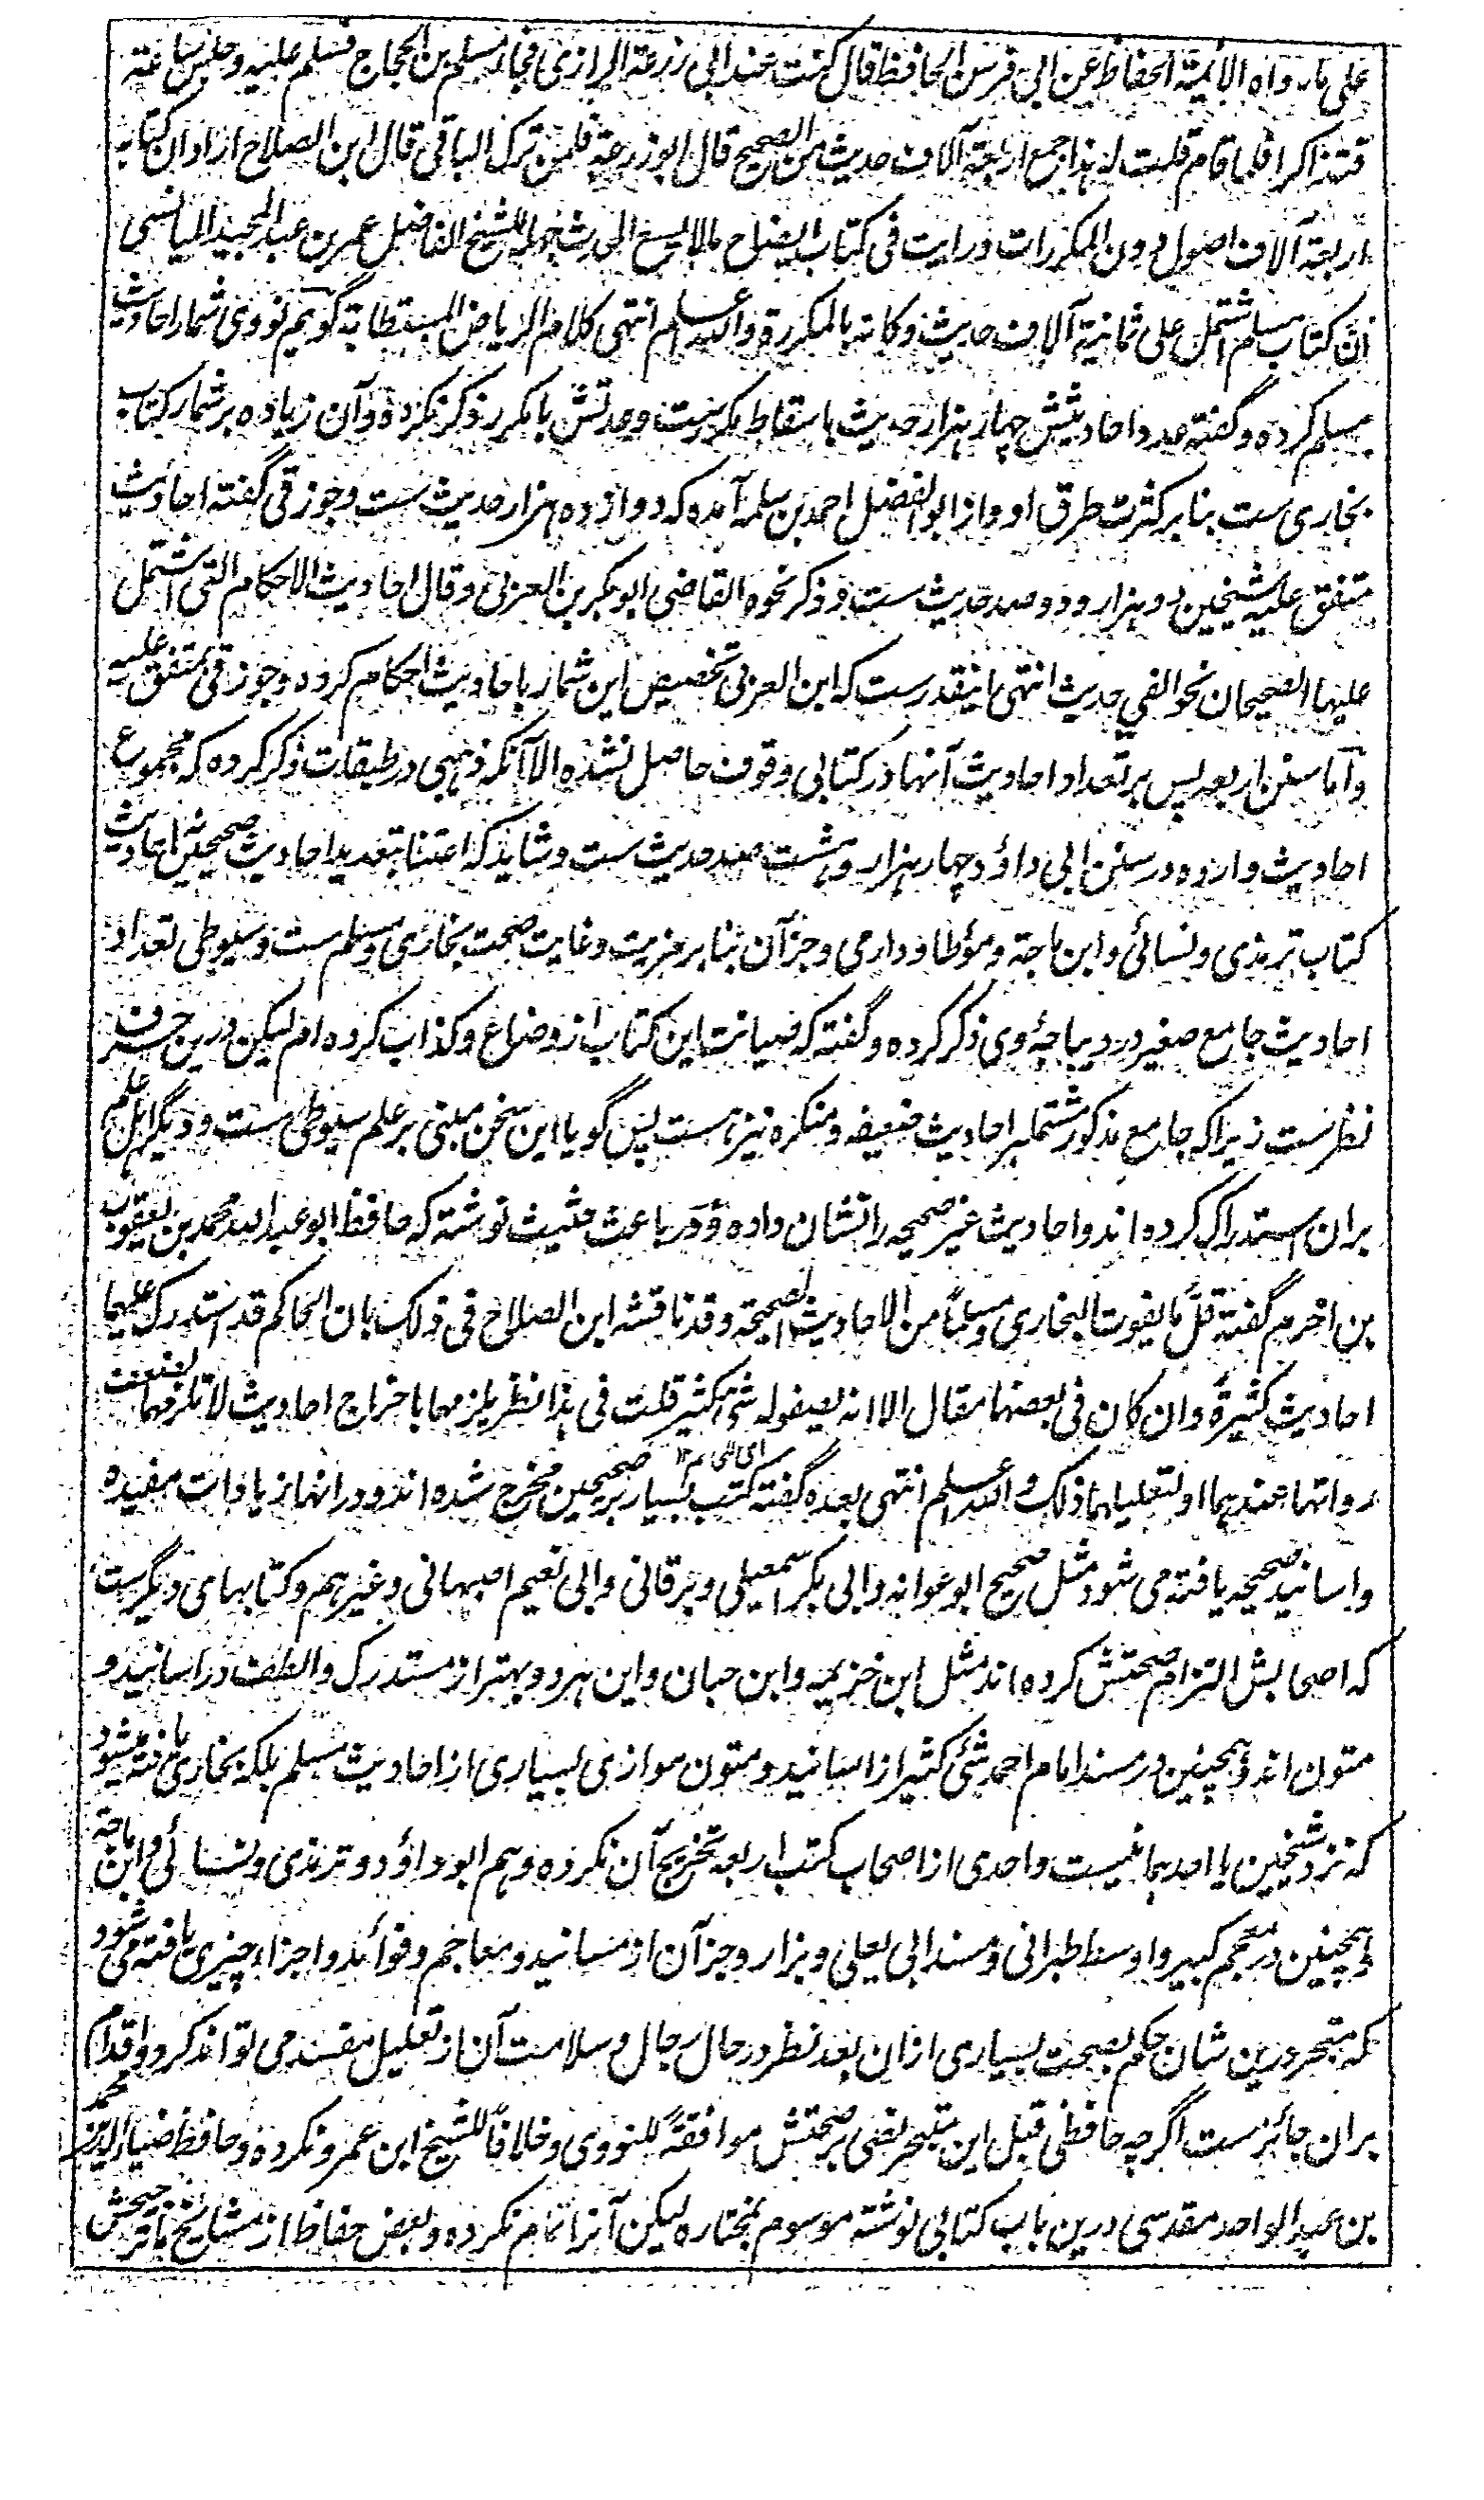 علی ما رواه الأئمة الحفاظ عن ابی قریش الحافظ قال کنت عند ابی زرعة الرازی فجاء مسلم بن الحجاج فسلم علیه وجلس ساعة
فتذاکرا فلما قام قلت له هذا جمع اربعة آلاف حدیث من الصحیح قال ابو زرعة فلمن ترک الباقی قال ابن الصلاح اراد ان کتابه
اربعة آلاف اصول دون المکررات ورایت فی کتاب ایضاح مالا یسع المحدث جهله للشیخ الفاضل عمر بن عبد المجید المیانشی
ان کتاب مسلم اشتمل علی ثمانیة آلاف حدیث وکانه بالمکررة والله اعلم انتهی کلام الریاض المستطابة گویم نووی شمار احادیث
مسلم کرده و گفته عدد احادیثش چهار هزار حدیث باسقاط مکررست وعدتش با مکرر ذکر نکرده وآن زیاده بر شمار کتاب
بخاری ست بنا بر کثرت طرق او واز ابو الفضل احمد بن سلمه آمده که دوازده هزار حدیث ست وجوزقی گفته احادیث
متفق علیه شیخین دو هزار ودو صد حدیث ست وذکر نحوه القاضی ابو بکر بن العربی وقال احادیث الاحکام التی اشتمل
علیها الصحیحان نحو الفی حدیث انتهی اینقدرست که ابن العربی تخصیص این شمار باحادیث احکام کرده وجوزقی بمتفق علیه
واما سنن اربعه پس بر تعداد احادیث آنها در کتابی وقوف حاصل نشده الا آنکه ذهبی در طبقات ذکر کرده که مجموع
احادیث وارده در سنن ابی داؤد چهار هزار وهشت صد حدیث ست وشاید که اعتنا بتعدید احادیث صحیحین نه احادیث
کتاب ترمذی ونسائی وابن ماجة ومؤطا ودارمی وجز آن بنا بر مزیت وغایت صحت بخاری ومسلم ست وسیوطی تعداد
احادیث جامع صغیر در دیباجۀ وی ذکر کرده وگفته که صیانت این کتاب از وضاع وکذاب کرده ام لیکن درین حرف
نظرست زیرا که جامع مذکور مشتمل بر احادیث ضعیفه ومنکره نیز هست پس گویا این سخن مبنی بر علم سیوطی ست ودیگر اهل علم
بران استدراک کرده اند واحادیث غیر صحیحه را نشان داده ودر باعث حثیث نوشته که حافظ ابو عبد الله محمد بن یعقوب
بن اخرم گفته قل ما یفوت البخاری ومسلما من الاحادیث الصحیحة وقد ناقشه ابن الصلاح فی ذلک بان الحاکم قد استدرک علیهما
احادیث کثیرة وان کان فی بعضها مقال الا انه یصفو له شئ کثیر قلت فی هذا نظر یلزمهما باخراج احادیث لا تلزمهما لضعف
رواتها عندهما او لتعلیلهما ذلک والله اعلم انتهی بعده گفته کتب بسیار بر صحیحین مخرج شده اند ودر انها زیادات مفیده
واسانید صحیحه یافته می شود مثل صحیح ابو عوانه وابی بکر اسمعیلی وبرقانی وابی نعیم اصبهانی وغیرهم وکتابهای دیگرست
که اصحابش التزام صحتش کرده اند مثل ابن خزیمه وابن حبان واین هر دو بهتر از مستدرک والطف در اسانید و
متون اند وهمچنین در مسند امام احمد شئی کثیر از اسانید ومتون موازی بسیاری از احادیث مسلم بلکه بخاری یافته میشود
که نزد شیخین یا احدهما نیست واحدی از اصحاب کتب اربعه تخریج آن نکرده وهم ابو داؤد وترمذی ونسائی وابن ماجة
وهمچنین در معجم کبیر واوسط طبرانی ومسند ابی یعلی وبزار وجز آن از مسانید ومعاجم وفوائد واجزاء چیزی یافته می شود
که متبحر درین شان حکم بصحت بسیاری ازان بعد نظر در حال رجال وسلامت آن از تعلیل مفسد می تواند کرد واقدام
بران جائزست اگرچه حافظی قبل این متبحر نص بر صحتش موافقة للنووی وخلافا للشیخ ابن عمرو نکرده وحافظ ضیاء الدین محمد
بن عبد الواحد مقدسی درین باب کتابی نوشته موسوم بمختاره لیکن آنرا تمام نکرده وبعض حفاظ از مشایخ ما ترجیحش